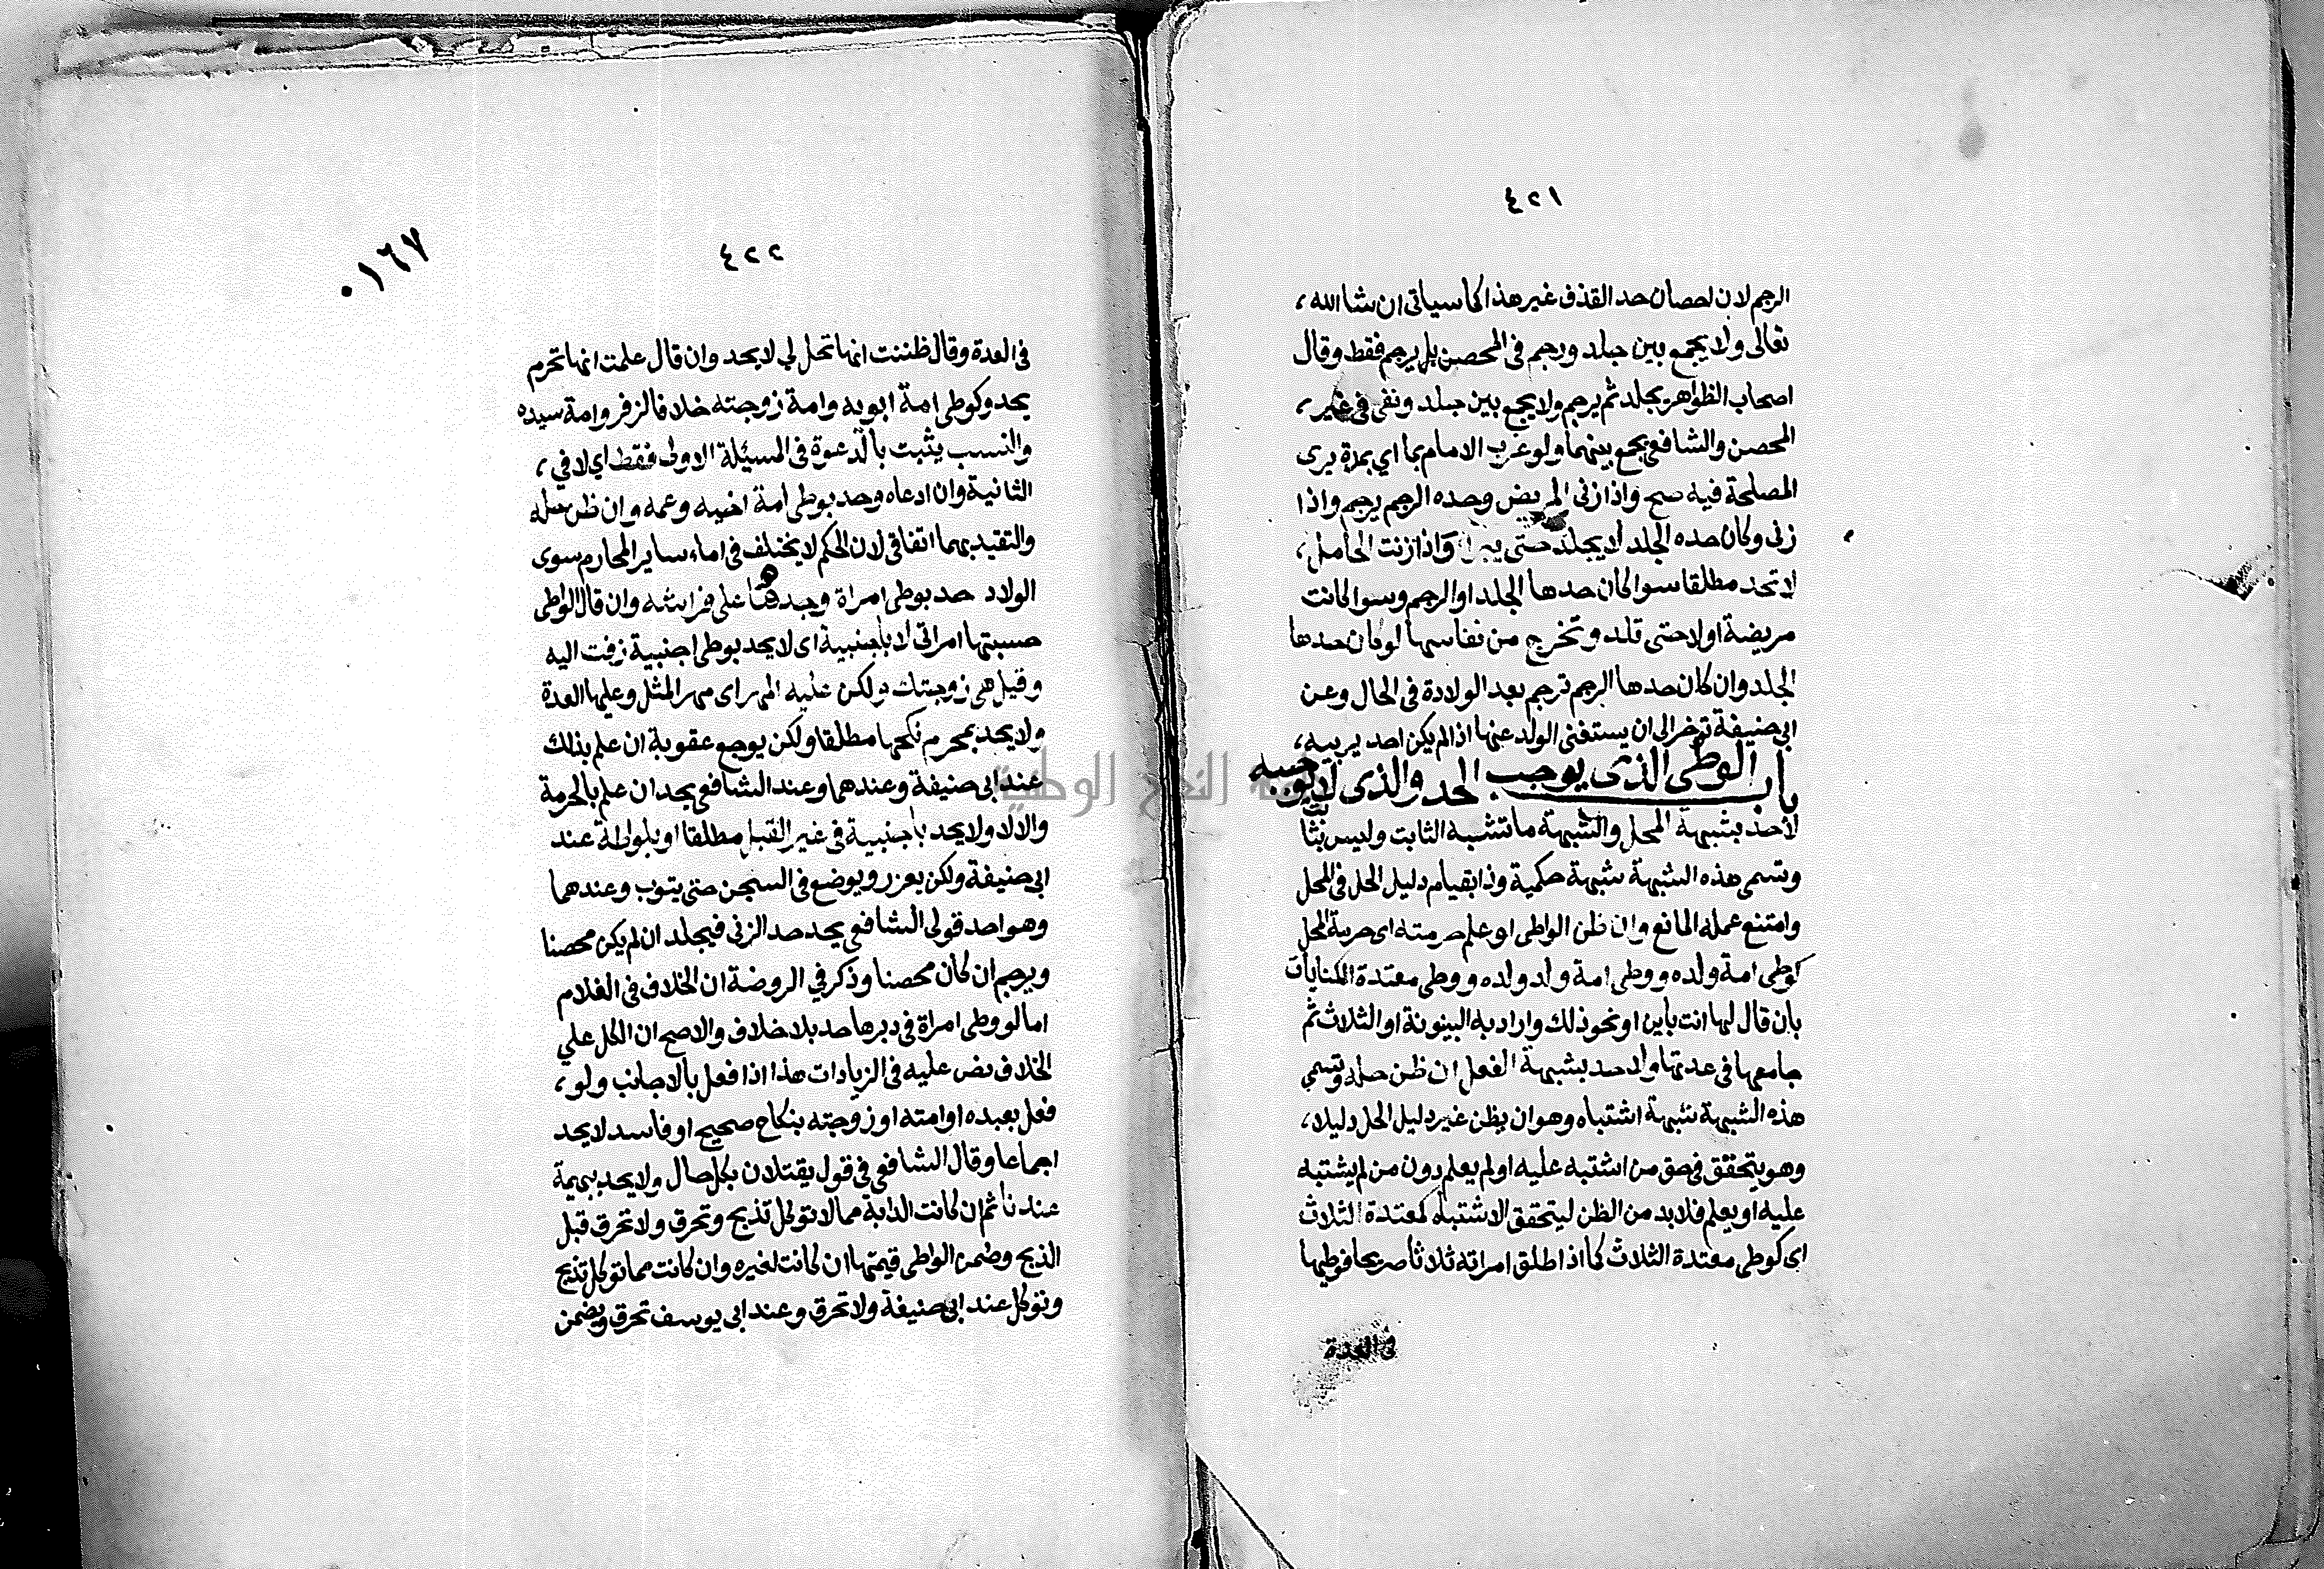 ٤٢١
الرجم لان احصان حد القذف غير هذا كما سياتي ان شا الله
تعالى ولا يجمع بين جلد ورجم في المحصن بل يرجم فقط وقال
اصحاب الظواهر يجلد ثم يرجم ولا يجمع بين جلد ونفى فى غير
المحصن والشافعي يجمع بينهما ولو غرب الامام بما اي بمدة يرى
المصلحة فيه صح واذا زنى المريض وحده الرجم يرجم واذا
زنى وكان حده الجلد لا يجلد حتى يبرا واذا زنت الحامل
لا تحد مطلقا سوا كان حدها الجلد او الرجم وسوا كانت
مريضة اولا حتى تلد وتخرج من نفاسها لو كان حدها
الجلد وان كان حدها الرجم ترجم بعد الولادة فى الحال وعن
ابي حنيفة توخر الى ان يستغنى الولد عنها اذا لم يكن احد يربيه
باب الوطي الذى يوجب الحد والذى لا يوجبه
لا حد بشبهة المحل والشبهة ما تشبه الثابت وليس بثابت
وتسمى هذه الشبهة شبهة حكمية وذا بقيام دليل الحل فى المحل
وامتنع عمله المانع وان ظن الواطى او علم حرمته اى حرمة المحل
كوطى امة ولده ووطى امة ولد ولده ووطى معتدة الكنايات
بان قال لها انت باين او نحو ذلك واراد به البينونة او الثلاث ثم
جامعها فى عدتها ولا حد بشبهة الفعل ان ظن حله وتسمي
هذه الشبهة شبهة اشتباه وهو ان يظن غير دليل الحل دليلا
وهو يتحقق في حق من اشتبه عليه او لم يعلم دون من لم يشتبه
عليه او يعلم فلا بد من الظن ليتحقق الاشتباه كمعتدة الثلاث
اى كوطى معتدة الثلاث كما اذا طلق امراته ثلاثا صريحا فوطيها
فى العدة
٠١٦٧
٤٢٢
فى العدة وقال ظننت انها تحل لي لا يحد وان قال علمت انها تحرم
يحد وكوطى امة ابويه وامة زوجته خلافا لزفر وامة سيده
والنسب يثبت بالدعوة فى المسئلة الاولى فقط اي لا في
الثانية وان ادعاه وحد بوطى امة اخيه وعمه وان ظن حله
والتقيد بهما اتفاقى لان الحكم لا يختلف فى اماء ساير المحارم سوى
الولاد حد بوطى امراة وجدها على فراشه وان قال الواطى
حسبتها امراتى لا باجنبية اى لا يحد بوطى اجنبية زفت اليه
وقيل هى زوجتك ولكن عليه المهر اى مهر المثل وعليها العدة
ولا يحد بمحرم نكحها مطلقا ولكن يوجع عقوبة ان علم بذلك
عند ابى حنيفة وعندهما وعند الشافعى يحد ان علم بالحرمة
والا لا ولا يحد باجنبية فى غير القبل مطلقا او بلواطة عند
ابى حنيفة ولكن يعزر ويوضع فى السجن حتى يتوب وعندهما
وهو احد قولى الشافعى يحد حد الزنى فيجلد ان لم يكن محصنا
ويرجم ان كان محصنا وذكر في الروضة ان الخلاف فى الغلام
اما لو وطى امراة فى دبرها حد بلا خلاف والاصح ان الكل علي
الخلاف نص عليه فى الزيادات هذا اذا فعل بالاجانب ولو
فعل بعبده او امته او زوجته بنكاح صحيح او فاسد لا يحد
اجماعا وقال الشافعى فى قول يقتلان بكل حال ولا يحد ببهيمة
عندنا ثم ان كانت الدابة مما لا توكل تذبح وتحرق ولا تحرق قبل
الذبح وضمن الواطى قيمتها ان كانت لغيره وان كانت مما توكل تذبح
وتوكل عند ابى حنيفة ولا تحرق وعند ابى يوسف تحرق ويضمن